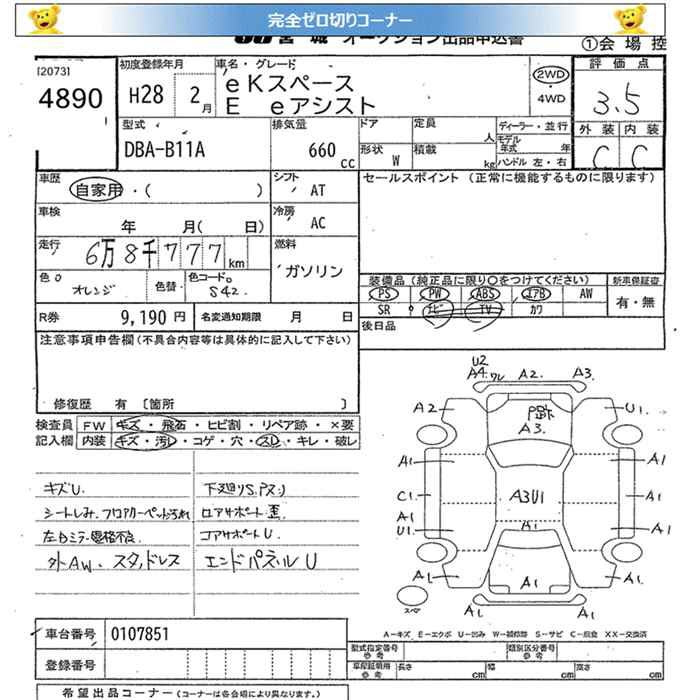 完全ゼロ切りコーナー
宮城 オークション出品申込書
①会場控
[2073]
4890
初度登録年月
H28 2月
車名・グレード
eKスペース
E eアシスト
2WD
・
4WD
評価点
3.5
外装 内装
C C
型式
DBA-B11A
排気量
660 cc
ドア
定員 人
ディーラー・並行
モデル年式 年
形状 W
積載 kg
ハンドル 左・右
車歴
自家用・( )
シフト
AT
セールスポイント (正常に機能するものに限ります)
車検
年 月( 日)
冷房
AC
走行
6万8千777km
燃料
ガソリン
色
オレンジ
色替
色コードNo.
S42.
装備品(純正品に限り○をつけてください)
新車保証書
PS PW ABS エアB AW
有・無
SR ナビ TV カワ
R券 9,190円
名変通知期限 月 日
後日品
注意事項申告欄(不具合内容等は具体的に記入して下さい)
修復歴 有 〔箇所 〕
検査員記入欄
FW キズ・飛石・ヒビ割・リペア跡・×要
内装 キズ・汚レ・コゲ・穴・スレ・キレ・破レ
キズU. 下廻りS,Pヌリ
シートしみ.フロアカーペット汚れ ロアサポート歪
左Dミラー電格不良. コアサポートU.
外AW. スタッドレス エンドパネルU
U2
A4 ワレ A2. A3.
A2 P跡 U1
A3.
A1 A1
C1 A3U1 A1
A1 A1
U1 A1
A1 A1 A1.
スペア
A1 A1
A-キズ E-エクボ U-凹み W-補修跡 S-サビ C-腐食 XX-交換済
車台番号 0107851
型式指定番号 参考
類別区分番号 参考
登録番号
車庫証明用 参考
長さ cm 幅 cm 高さ cm
希望出品コーナー(コーナーは各会場により異なります。)